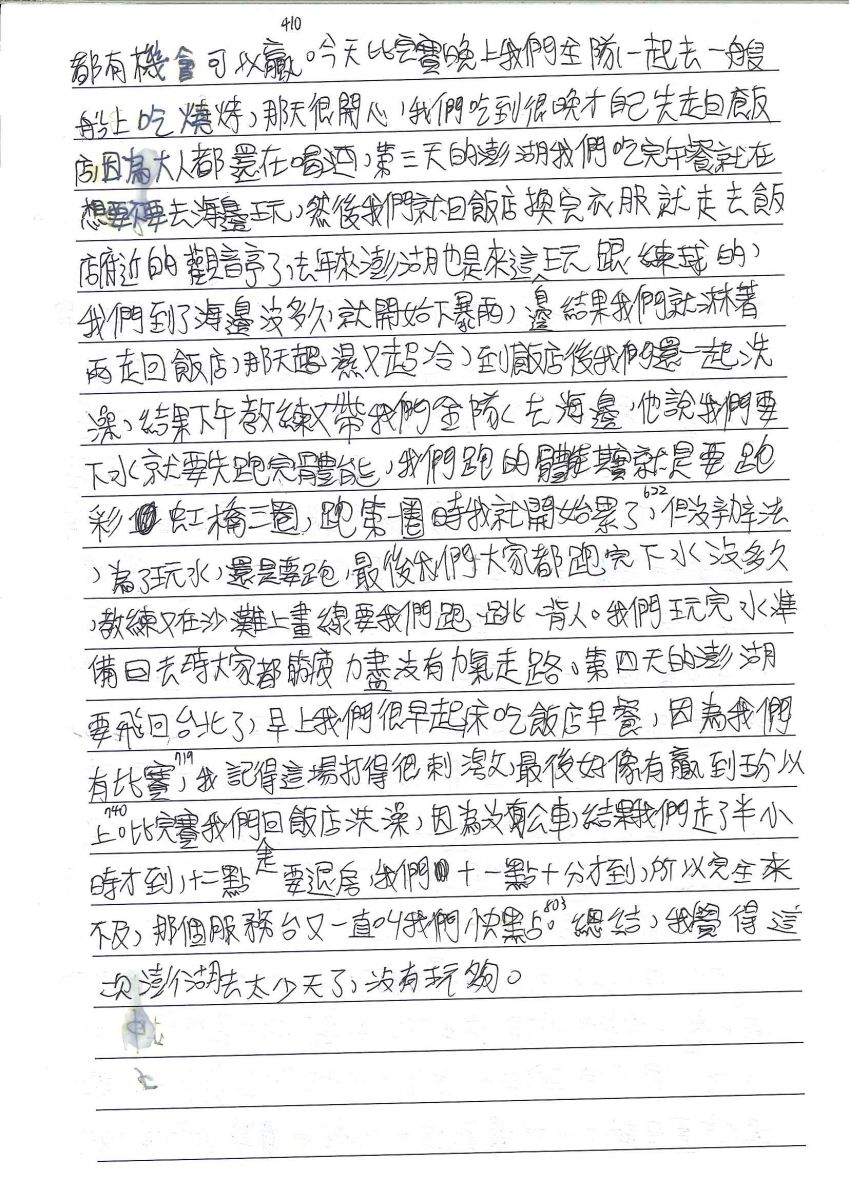 410
都有機會可以贏。今天比完賽晚上我們全隊一起去一艘
船上吃燒烤，那天很開心，我們吃到很晚才自己先走回飯
店因為大人都還在喝酒，第三天的澎湖我們吃完午餐就在
想要不要去海邊玩，然後我們就回飯店換完衣服就走去飯
店附近的觀音亭了，去年來澎湖也是來這玩跟練球的，
我們到了海邊沒多久，就開始下暴雨，邊結果我們就淋著
雨走回飯店，那天超濕又超冷，到飯店後我們還一起洗
澡，結果下午教練又帶我們全隊去海邊，他說我們要
下水就要先跑完體能，我們跑的體能其實就是要跑
彩虹橋三圈，跑第一圈時我就開始累了，622但沒辦法
，為了玩水，還是要跑，最後我們大家都跑完下水沒多久
，教練又在沙灘上畫線要我們跑、跳、背人。我們玩完水準
備回去時大家都筋疲力盡沒有力氣走路。第四天的澎湖
要飛回台北了，早上我們很早起床吃飯店早餐，因為我們
有比賽，719我記得這場打得很刺激，最後好像有贏到五分以
上。740比完賽我們回飯店洗澡，因為沒有公車，結果我們走了半小
時才到，十二點是要退房，我們十一點十分才到，所以完全來
不及，那個服務台又一直叫我們快點。803總結，我覺得這
次澎湖去太少天了，沒有玩夠。